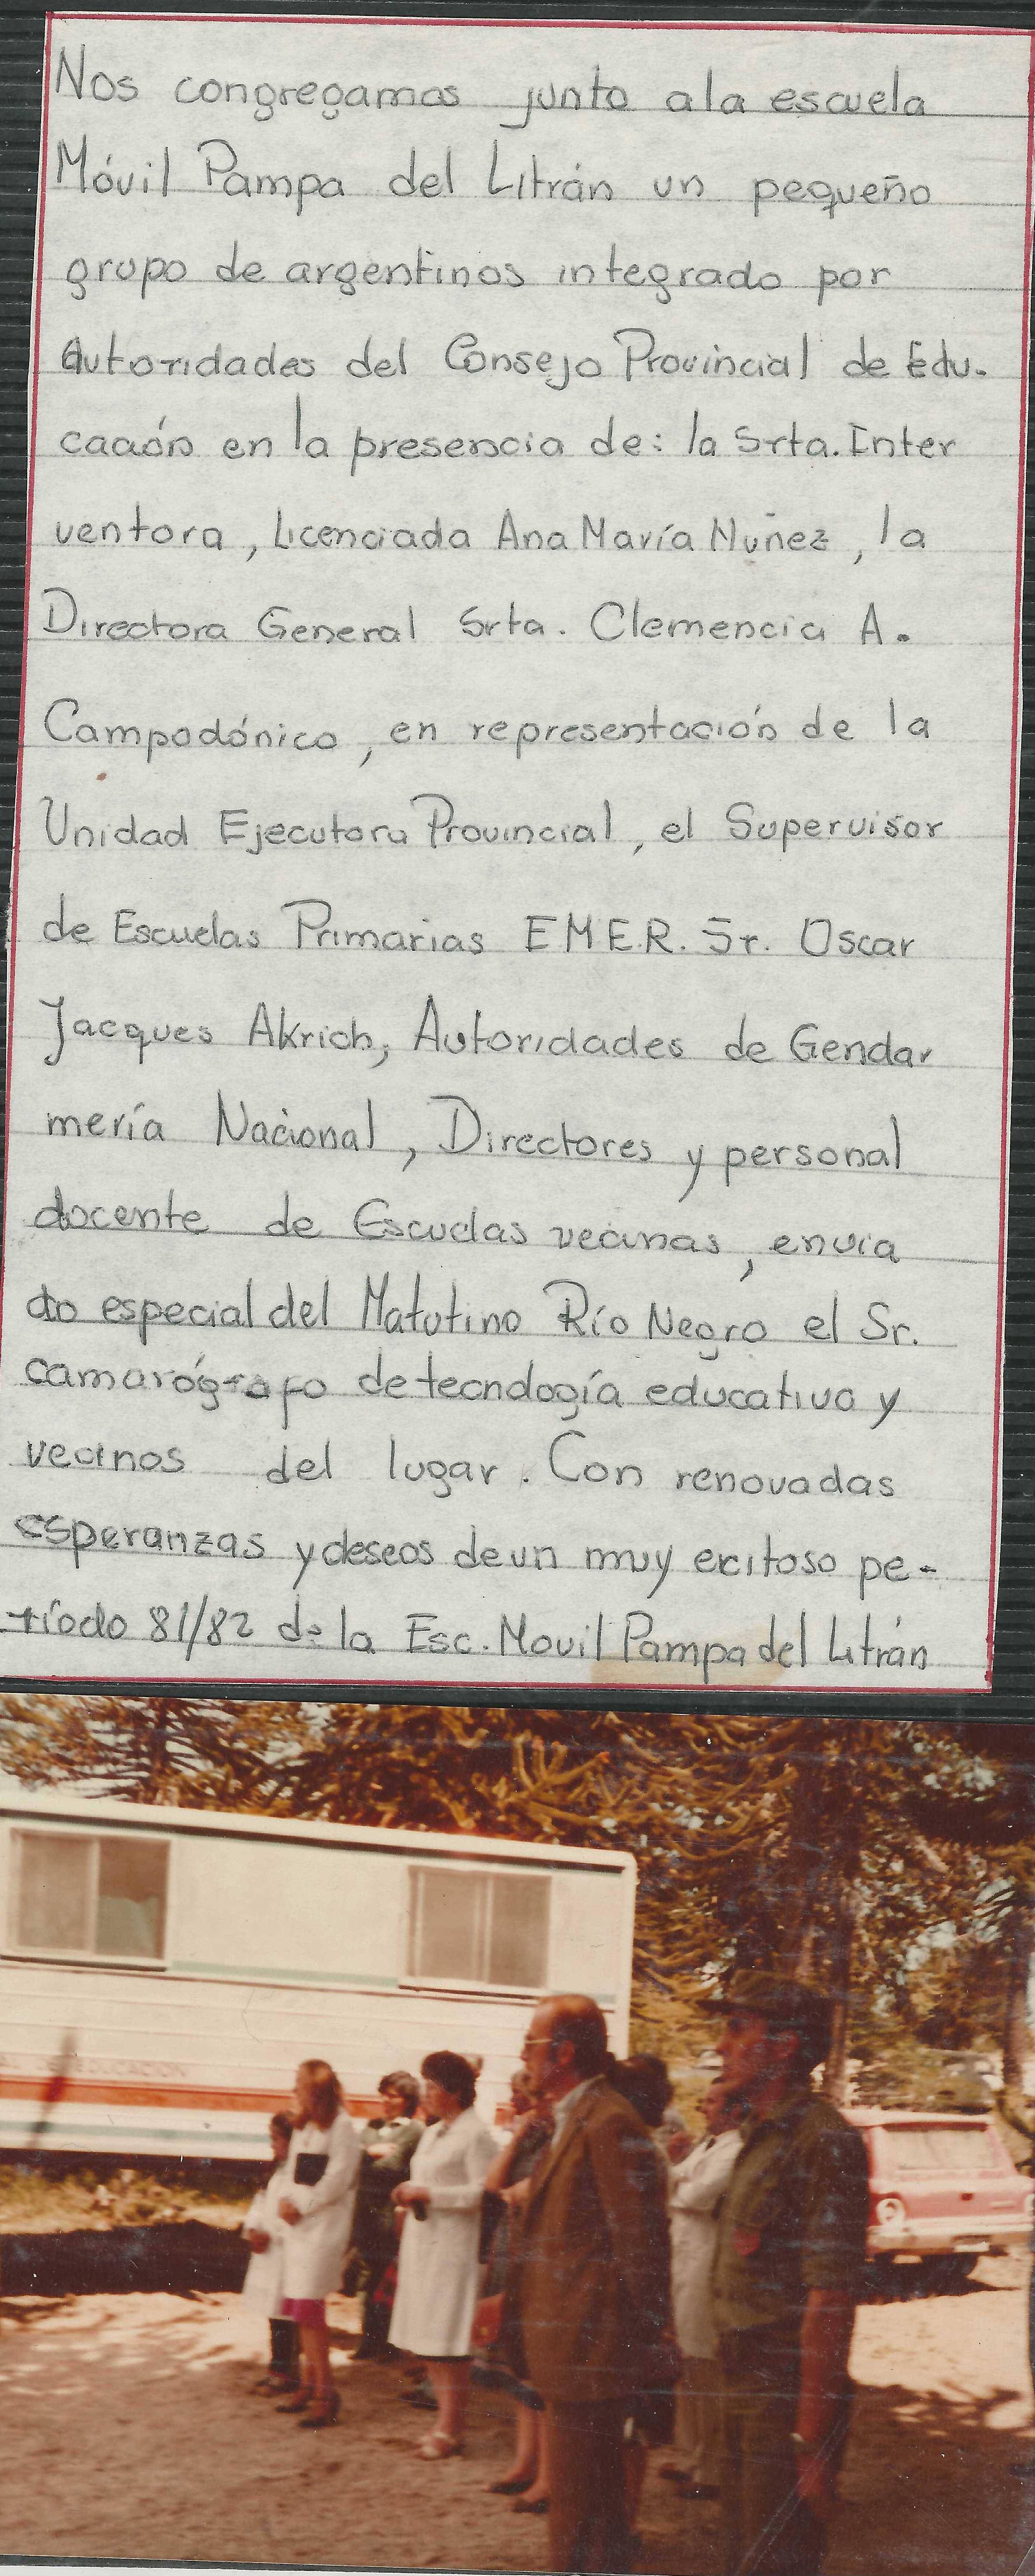 Nos congregamos junto a la escuela
Móvil Pampa del Litrán un pequeño
grupo de argentinos integrado por
Autoridades del Consejo Provincial de Edu-
cación en la presencia de: la Srta. Inter
ventora, Licenciada Ana María Nuñez, la
Directora General Srta. Clemencia A.
Campodónico, en representación de la
Unidad Ejecutora Provincial, el Supervisor
de Escuelas Primarias E.M.E.R. Sr. Oscar
Jacques Akrich, Autoridades de Gendar
mería Nacional, Directores y personal
docente de Escuelas vecinas, envia
do especial del Matutino Río Negro el Sr.
camarógrafo de tecnología educativa y
vecinos del lugar. Con renovadas
esperanzas y deseos de un muy exitoso pe-
ríodo 81/82 de la Esc. Movil Pampa del Litrán